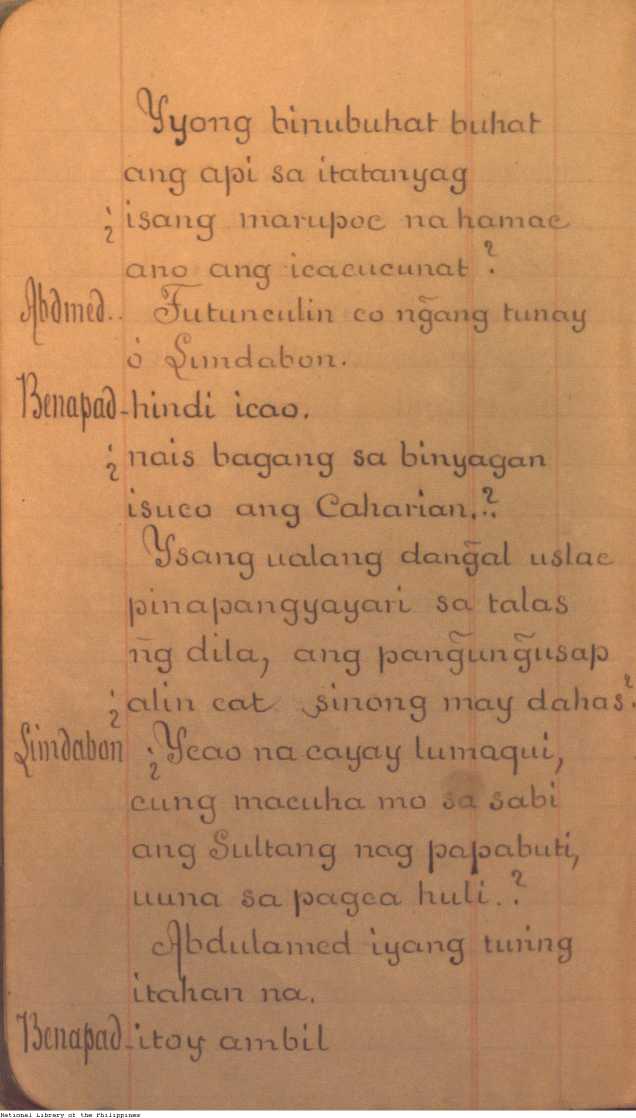 Yyong binubuhat buhat
ang api sa itatanyag
¿isang marupoc na hamac
ano ang icacucunat?
Abdmed.. Tutunculin co ng̃ang tunay
ó Limdabon.
Benapad-hindi icao.
¿nais bagang sa binyagan
isuco ang Caharian.?.
Ysang ualang dang̃al uslac
pinapangyayari sa talas
ñg dila, ang pang̃ung̃usap
¿alin cat sinong may dahas?
Limdabon ¿Ycao na cayay lumaqui,
cung macuha mo sa sabi
ang Sultang nag papabuti,
uuna sa pagca huli.?
Abdulamed iyang turing
itahan na.
Benapad-itoy ambil
National Library of the Philippines